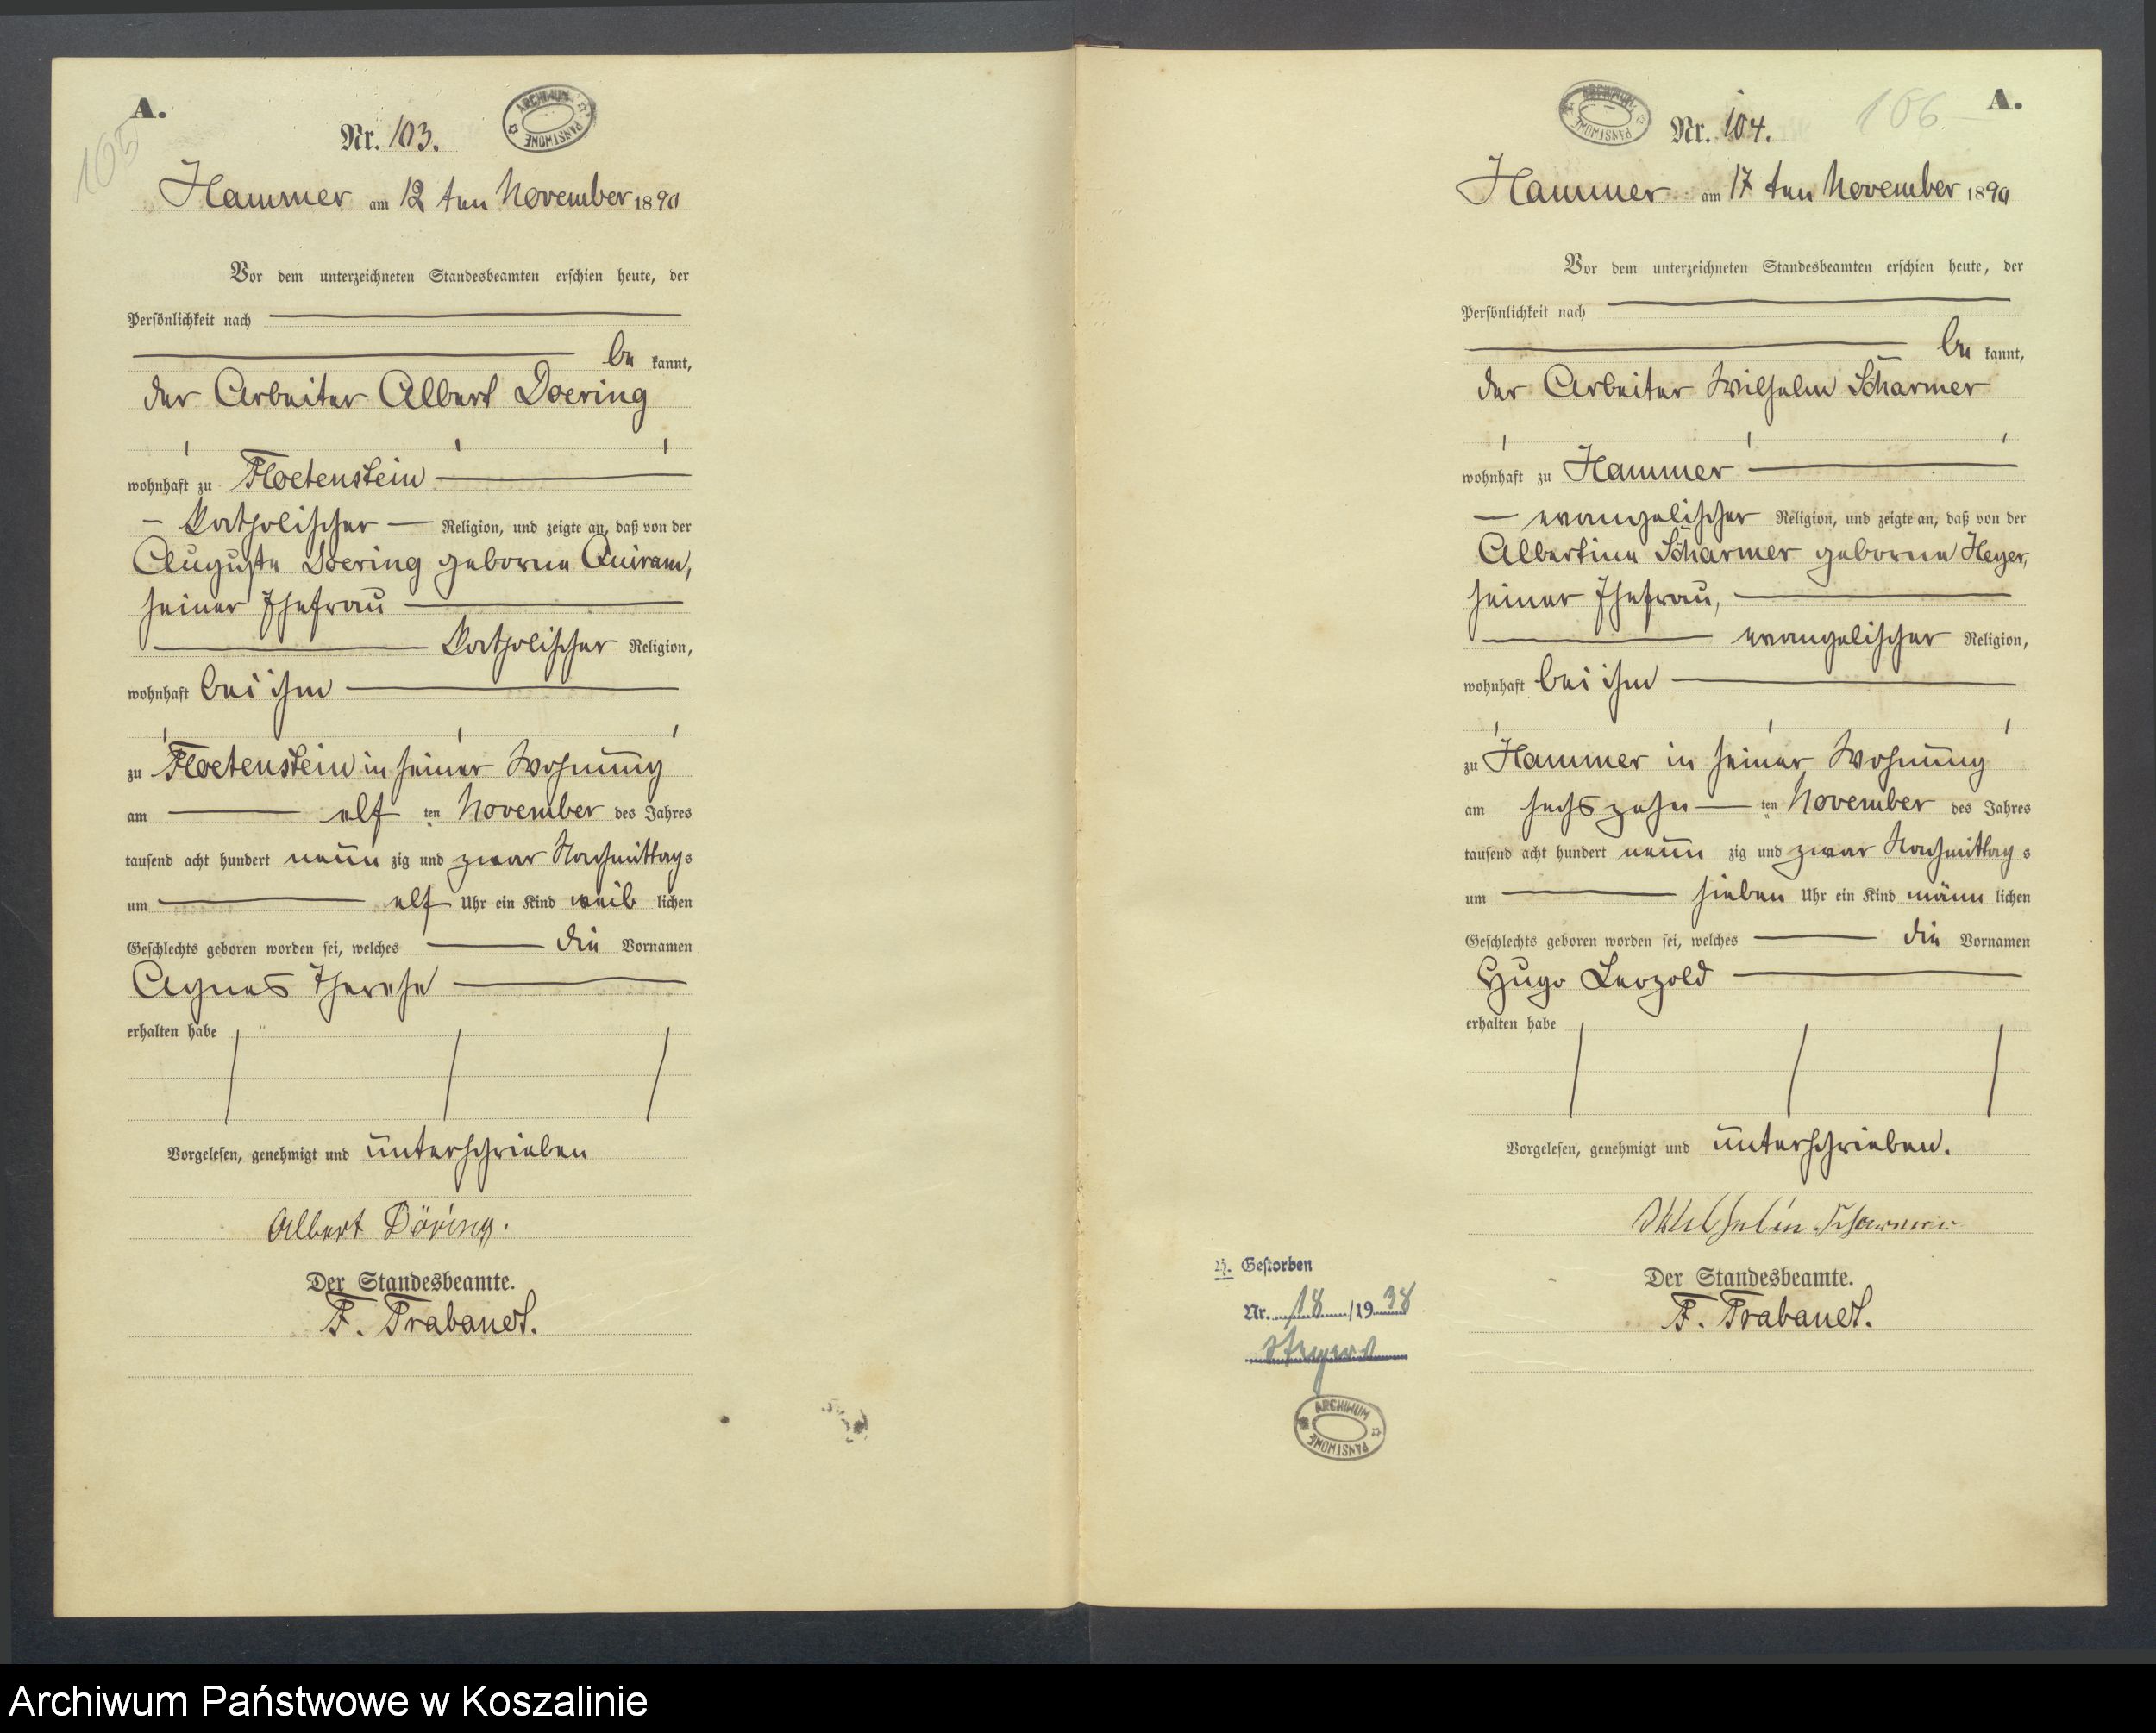 A.
105
Nr. 103.
ARCHIWUM PAŃSTWOWE
Hammer am 12 ten November 1890
Vor dem unterzeichneten Standesbeamten erschien heute, der
Persönlichkeit nach
be kannt,
der Arbeiter Albert Doering
wohnhaft zu Floetenstein
katholischer Religion, und zeigte an, daß von der
Auguste Doering geborne Quiram,
seiner Ehefrau
katholischer Religion,
wohnhaft bei ihm
zu Floetenstein in seiner Wohnung
am elf ten November des Jahres
tausend acht hundert neun zig und zwar Nachmittags
um elf Uhr ein Kind weib lichen
Geschlechts geboren worden sei, welches die Vornamen
Agnes Therese
erhalten habe
Vorgelesen, genehmigt und unterschrieben
Albert Döring.
Der Standesbeamte.
F. Trabandt.
A.
106
Nr. 104.
ARCHIWUM PAŃSTWOWE
Hammer am 17 ten November 1890
Vor dem unterzeichneten Standesbeamten erschien heute, der
Persönlichkeit nach
be kannt,
der Arbeiter Wilhelm Scharmer
wohnhaft zu Hammer
evangelischer Religion, und zeigte an, daß von der
Albertine Scharmer geborne Heyer,
seiner Ehefrau,
evangelischer Religion,
wohnhaft bei ihm
zu Hammer in seiner Wohnung
am sechszehn ten November des Jahres
tausend acht hundert neun zig und zwar Nachmittag s
um sieben Uhr ein Kind männ lichen
Geschlechts geboren worden sei, welches die Vornamen
Hugo Leopold
erhalten habe
Vorgelesen, genehmigt und unterschrieben.
Wilhelm Scharmer
Der Standesbeamte.
F. Trabandt.
H. Gestorben
Nr. 18 /19 38
ARCHIWUM PAŃSTWOWE
Archiwum Państwowe w Koszalinie